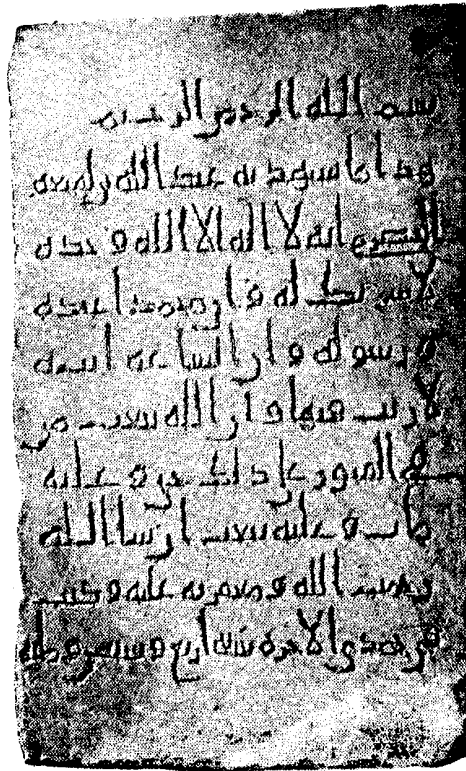 بسم الله الرحمن الرحيم
هذا ما شهد به عبد الله بن لهيعه
الحضرمي انه لا اله الا الله وحده
لا شريك له وان محمدا عبده
ورسوله وان الساعه اتيه
لا ريب فيها وان الله يبعث من
في القبور على ذلك حيي وعليه
مات وعليه يبعث ان شا الله
رحمت الله ومغفرته عليه وكتب
في جمدى الاخره سنه اربع وسبعين ومئه